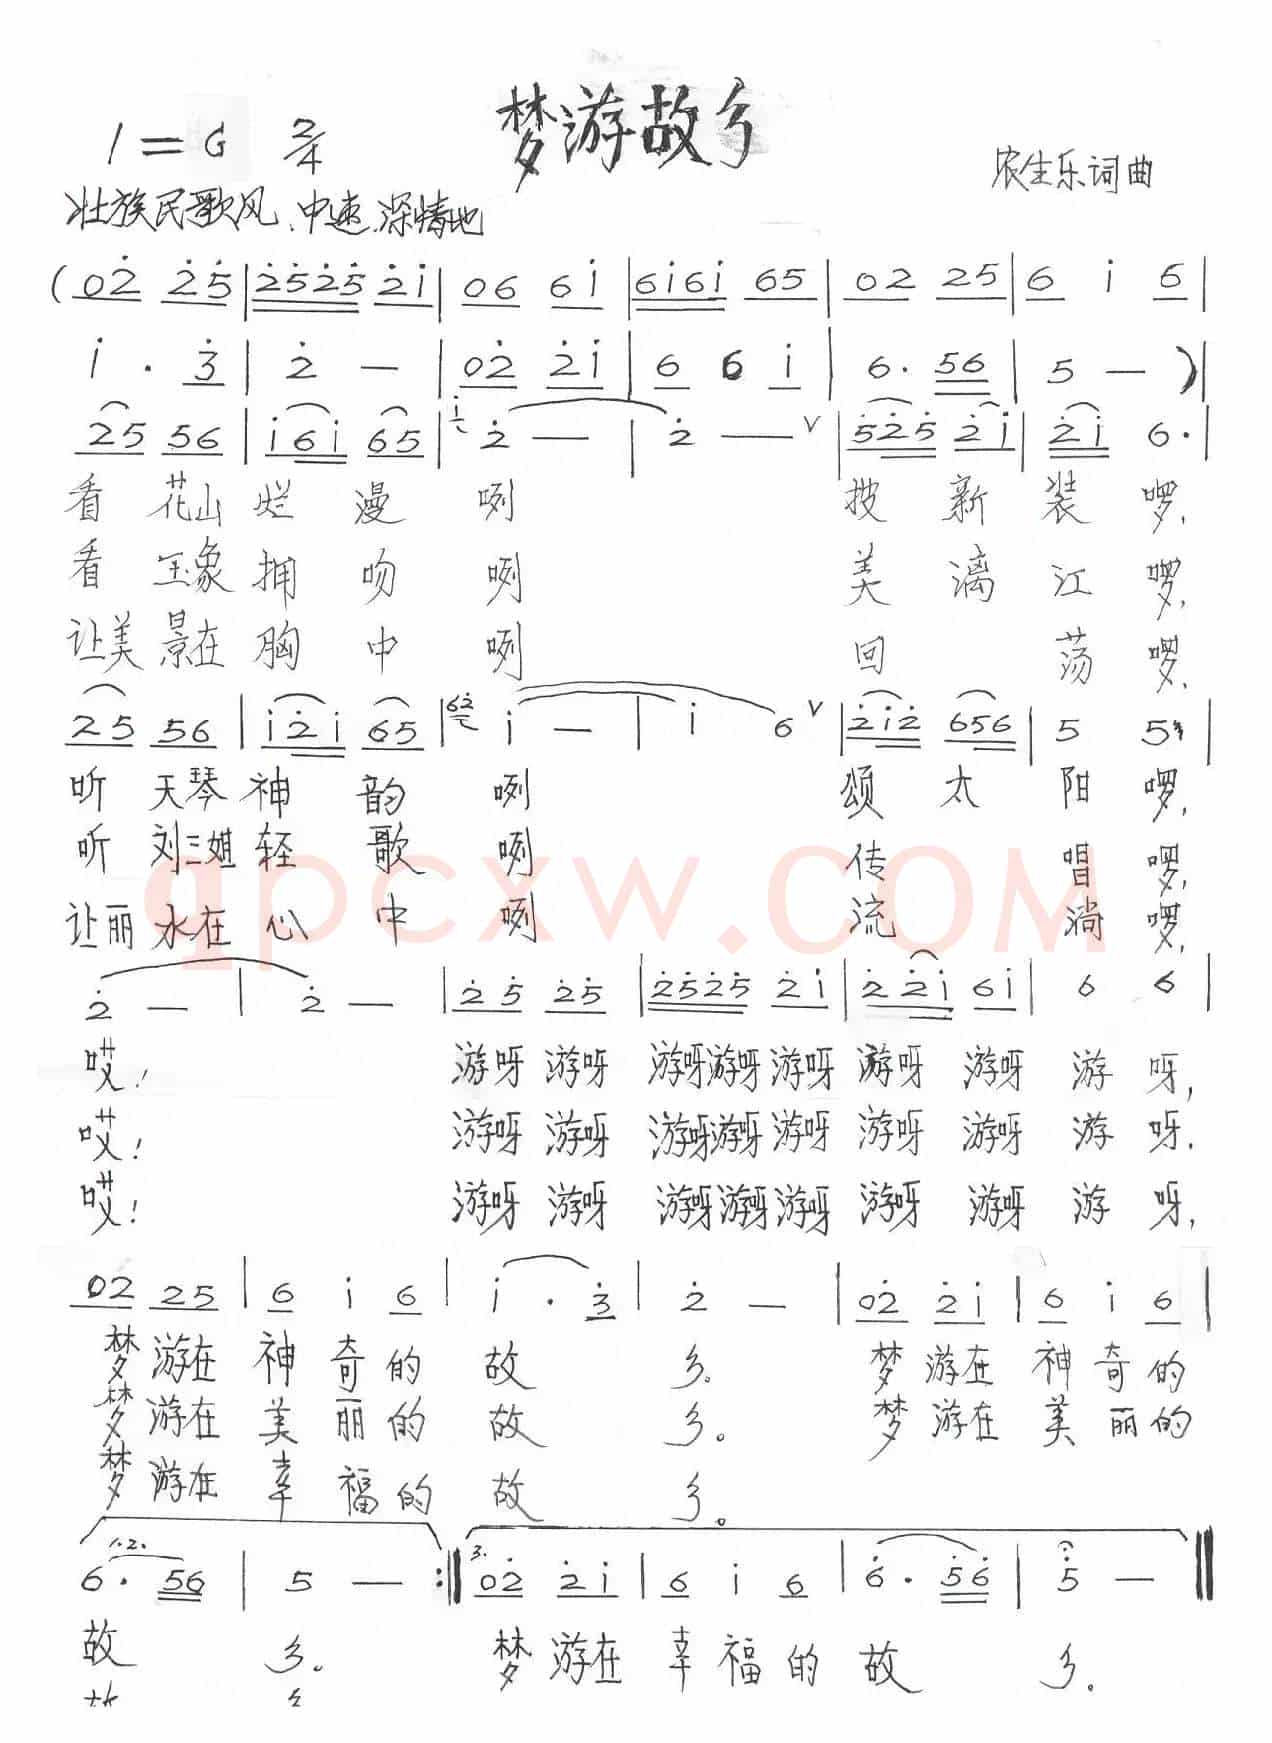 梦游故乡
1=G 2/4
农生乐词曲
壮族民歌风、中速、深情地
(02̇ 2̇5̇ | 2̇5̇2̇5̇ 2̇i | 06 6i | 6i6i 65 | 02 25 | 6 i 6 |
i · 3̇ | 2̇ — | 02̇ 2̇i | 6 6 i | 6· 56 | 5 — )|
25 56 | i6i 65 | 2̇ — | 2̇ — V | 5̇2̇5̇ 2̇i | 2̇i 6· |
看 花山 烂 漫 咧 披 新 装 啰,
看 玉象 拥 吻 咧 美 漓 江 啰,
让美 景在 胸 中 咧 回 荡 啰,
25 56 | i2̇i 65 | i — | i 6 V | 2̇i2̇ 656 | 5 5 |
听 天琴 神 韵 咧 颂 太 阳 啰,
听 刘三姐 轻 歌 咧 传 唱 啰,
qpcxw.COM
让丽 水在 心 中 咧 流 淌 啰,
2̇ — | 2̇ — | 2̇5̇ 2̇5̇ | 2̇5̇2̇5̇ 2̇i | 2̇ 2̇i 6i | 6 6 |
哎! 游呀 游呀 游呀游呀 游呀 游呀 游呀 游 呀,
哎! 游呀 游呀 游呀游呀 游呀 游呀 游呀 游 呀,
哎! 游呀 游呀 游呀游呀 游呀 游呀 游呀 游 呀,
02 25 | 6 i 6 | i · 3̇ | 2̇ — | 02̇ 2̇i | 6 i 6 |
梦 游在 神 奇的 故 乡。 梦 游在 神 奇 的
梦 游在 美 丽的 故 乡。 梦 游在 美 丽的
梦 游在 幸 福的 故 乡。
1.2. 3.
6· 56 | 5 — :‖ 02̇ 2̇i | 6 i 6 | 6̇· 5̇6̇ | 5̇ — ‖
故 乡。 梦 游在 幸 福 的 故 乡。